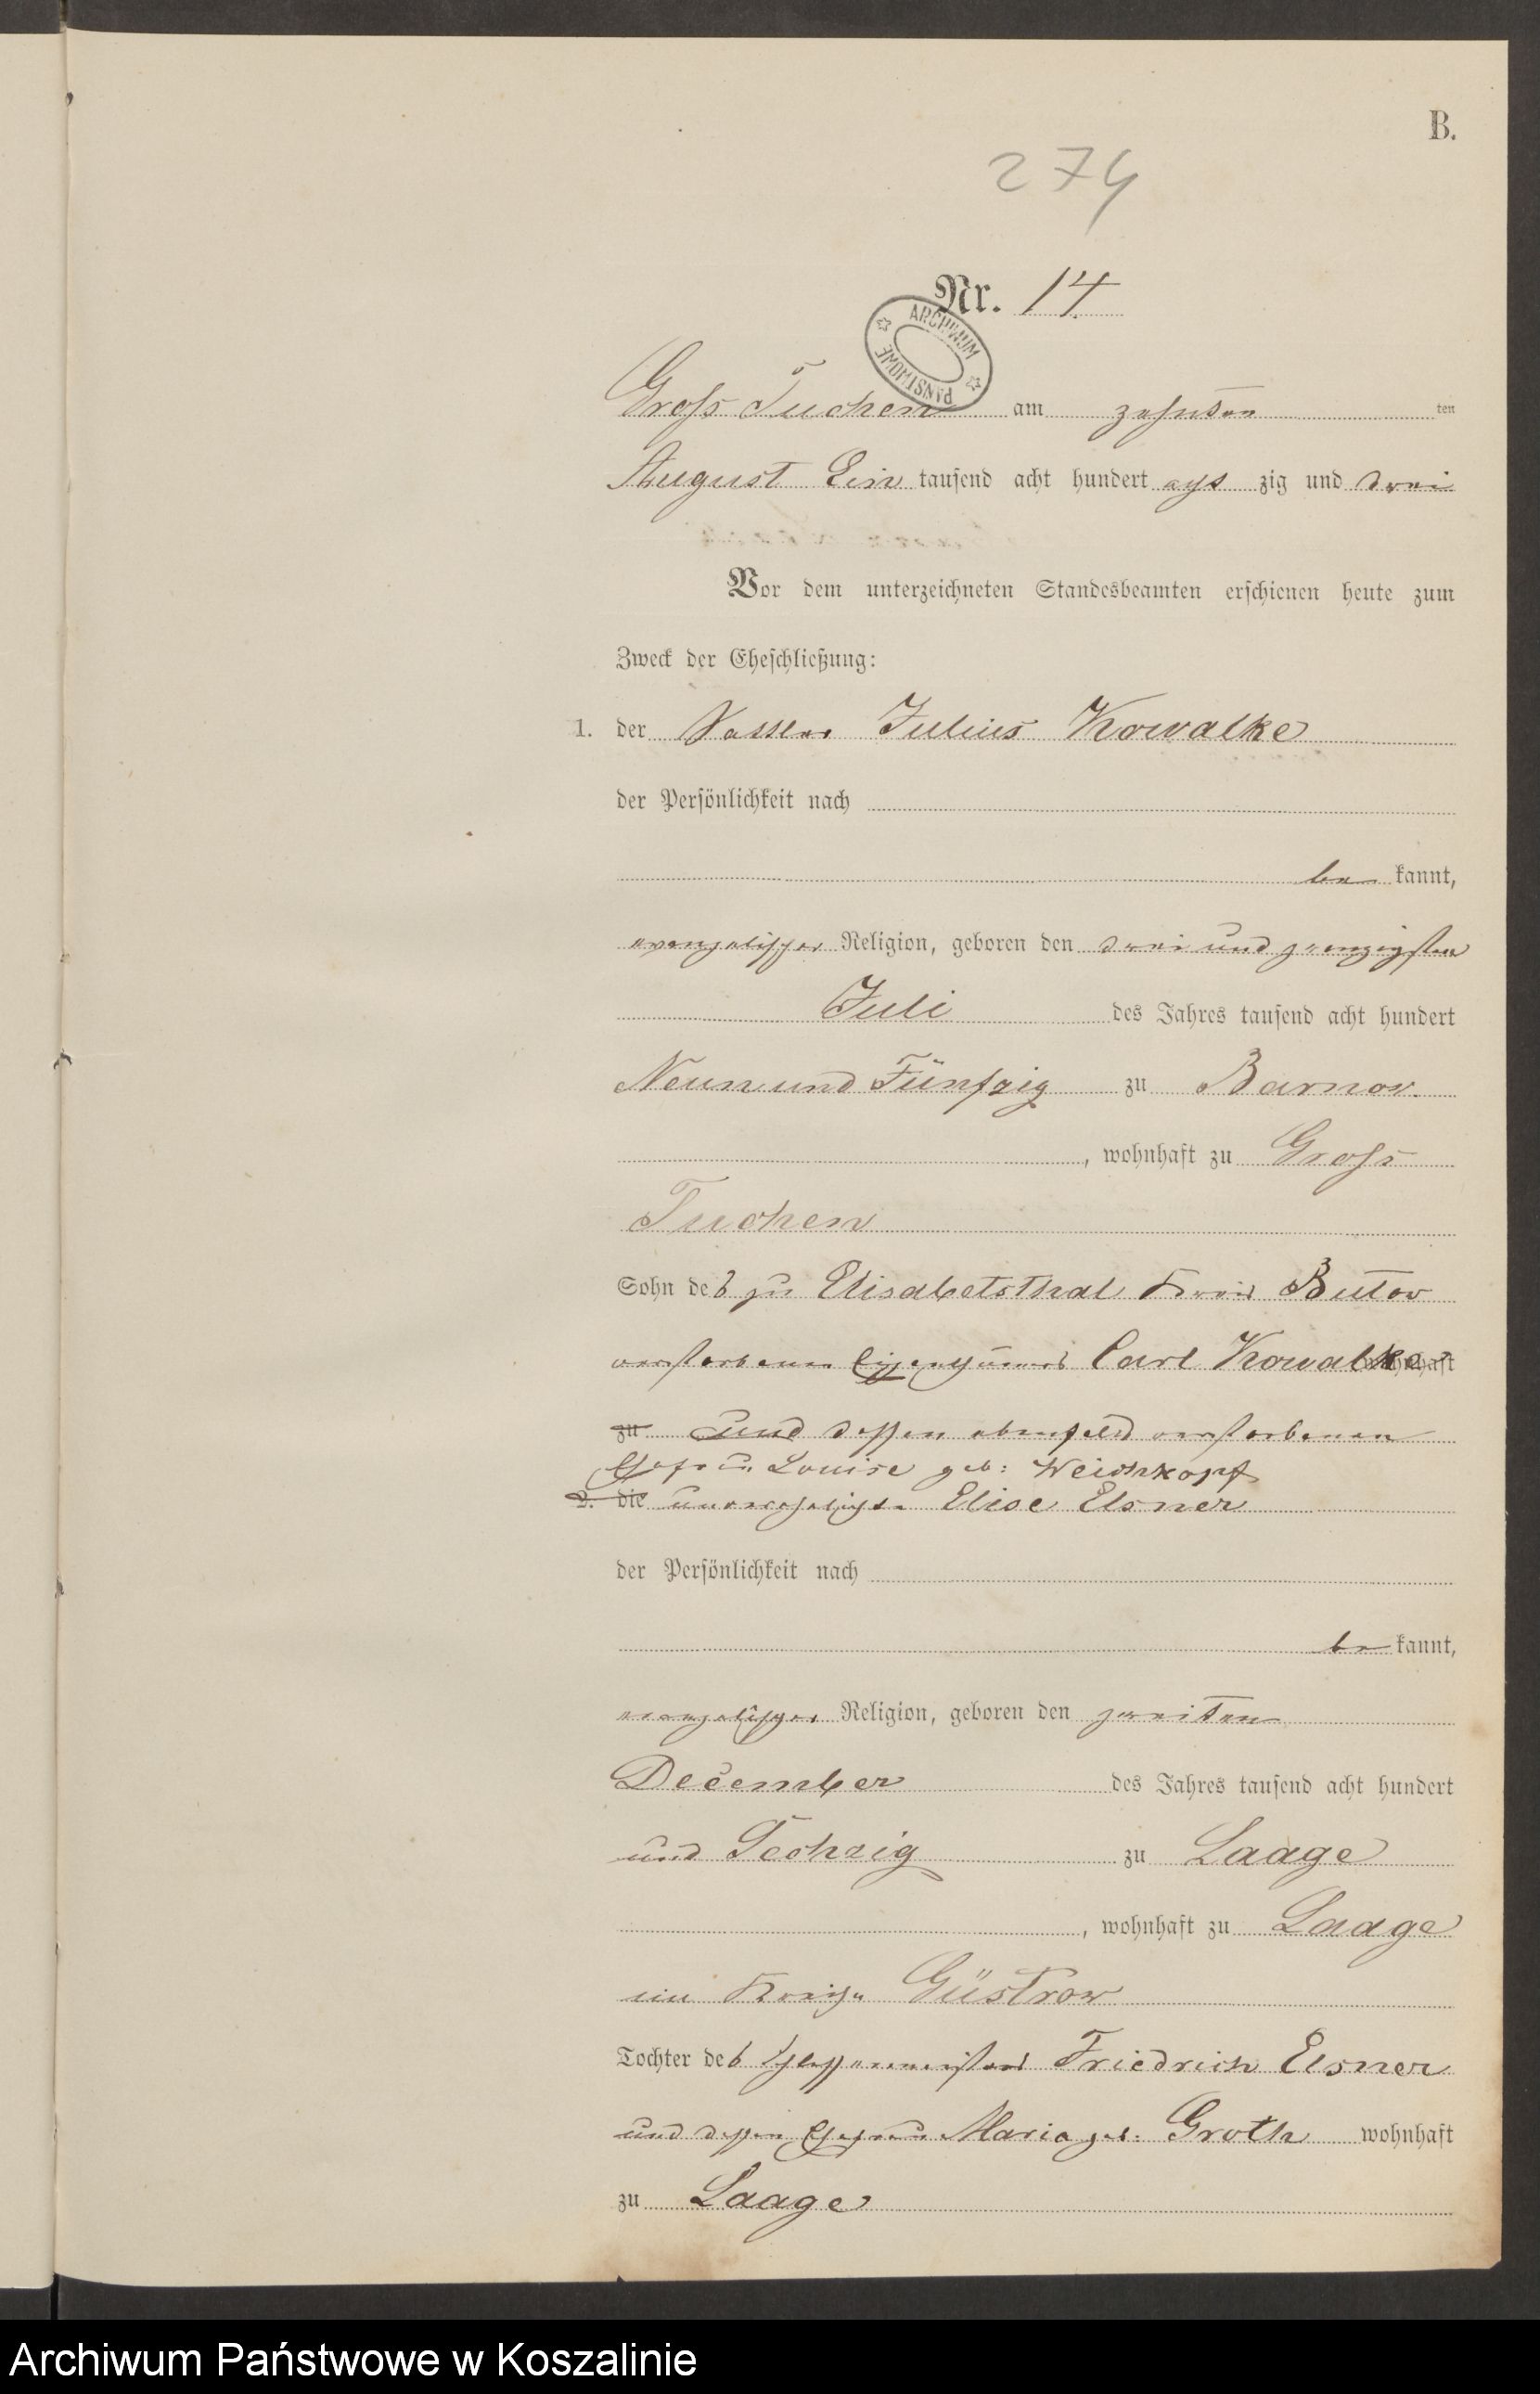 B.
274
Nr. 14
ARCHIWUM PAŃSTWOWE
Gross Tuchen am zehnten ten
August Ein tausend acht hundert acht zig und drei
Vor dem unterzeichneten Standesbeamten erschienen heute zum
Zweck der Eheschließung:
1. der Sattler Julius Kowalke
der Persönlichkeit nach
be kannt,
evangelischer Religion, geboren den drei und zwanzigsten
Juli des Jahres tausend acht hundert
Neun und Fünfzig zu Barnow
, wohnhaft zu Gross
Tuchen
Sohn des zu Elisabetsthal Kreis Butow
verstorbenen Eigenthümers Carl Kowalke wohnhaft
zu und dessen ebenfalls verstorbenen
Ehefrau Louise geb: Weichkopf
2. die unverehelichte Elise Elsner
der Persönlichkeit nach
be kannt,
evangelischer Religion, geboren den zweiten
December des Jahres tausend acht hundert
und Sechzig zu Laage
, wohnhaft zu Laage
im Kreise Güstrow
Tochter des Friedrich Elsner
und dessen Ehefrau Maria geb: Groth wohnhaft
zu Laage
Archiwum Państwowe w Koszalinie